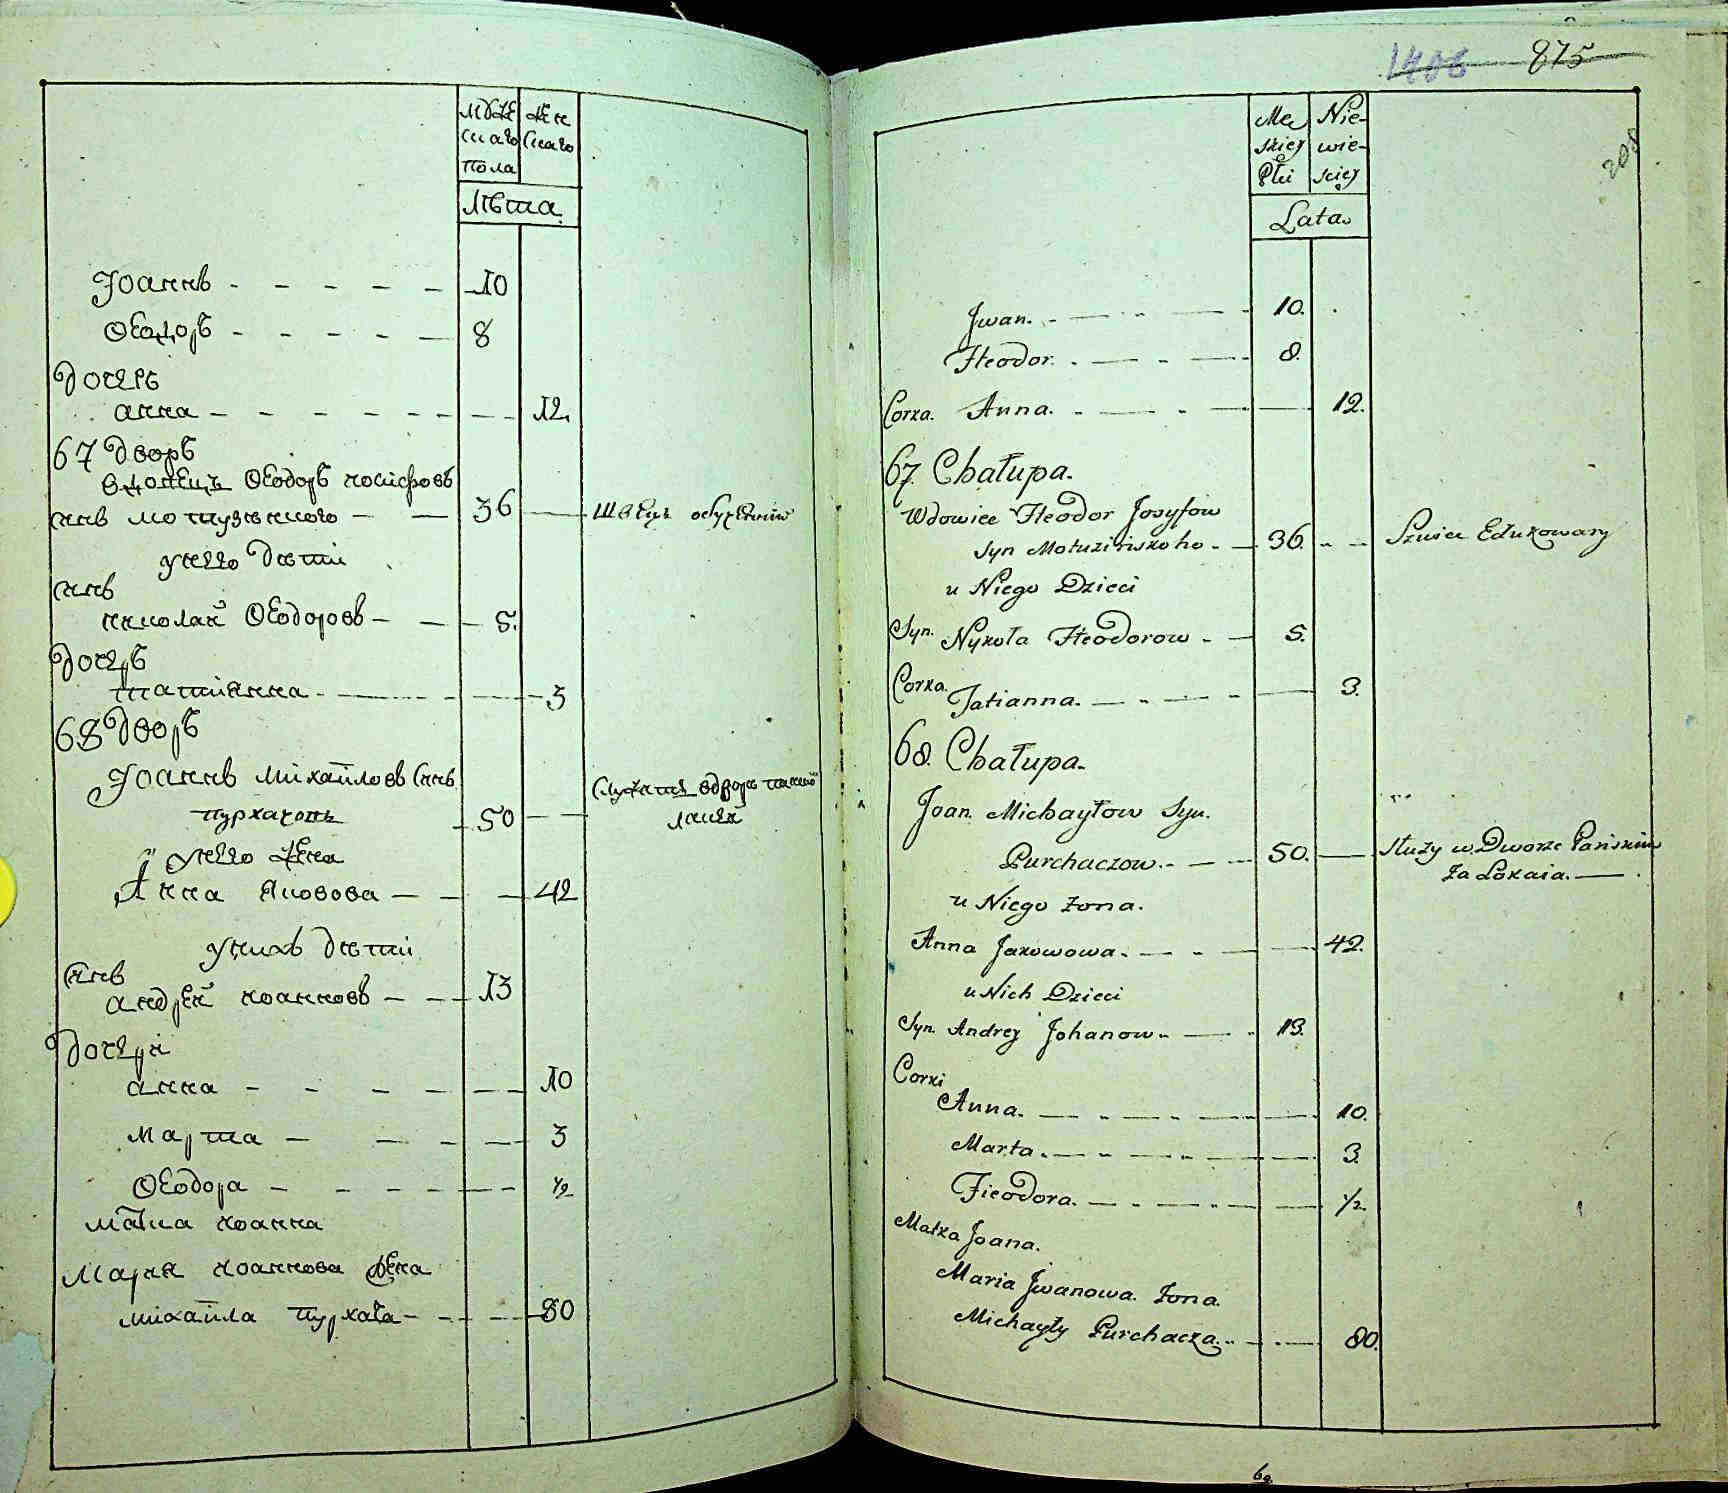 мужескаго пола
женскаго
Лѣта
Іоаннъ - - - - - 10
Ѳеодоръ - - - - 8
дочерь
анна - - - - - - 12.
67 дворъ
вдовецъ Ѳеодоръ иосифовъ
снъ мотузѣнкого - - 36 — Швецъ
у него дѣти
снъ
николай Ѳеодоровъ - - - 5.
дочерь
татиянна - - - 3
68 дворъ
Іоаннъ михайловъ снъ
пурхачовъ - 50 - - служитъ вдворѣ
у него жена
Анна Яковова - - - 42
у нихъ дѣти
снъ
андрей иоанновъ - - - 13
дочери
анна - - - - - 10
марта - - - - - 3
Ѳеодора - - - - - 1/2
матка иоанна
Мария иоаннова жена
михаила пурхача - - - - 80
1406 875
208
Męskiey Płci
Niewieściey
Lata.
Jwan. - - - - 10.
Fteodor. - - - - 8.
Corka. Anna. - - - - 12.
67. Chałupa.
Wdowiec Fteodor Josyfow
Syn Motuzińskoho. - 36. - - Szwiec Edukowany
u Niego Dzieci
Syn. Nykoła Fteodorow - - 5.
Corka. Tatianna. - - - - 3.
68. Chałupa.
Joan. Michayłow Syn.
Purchaczow. - - - 50. — Służy w Dworze Pańskim
za Lokaia. —
u Niego Żona.
Anna Jakowowa. - - - - 42.
u Nich Dzieci
Syn. Andrey Johanow. - - 13.
Corki
Anna. - - - - - 10.
Marta. - - - - - 3.
Fieodora. - - - - - 1/2.
Matka Joana.
Maria Jwanowa. Żona.
Michayły Purchacza. - - - 80.